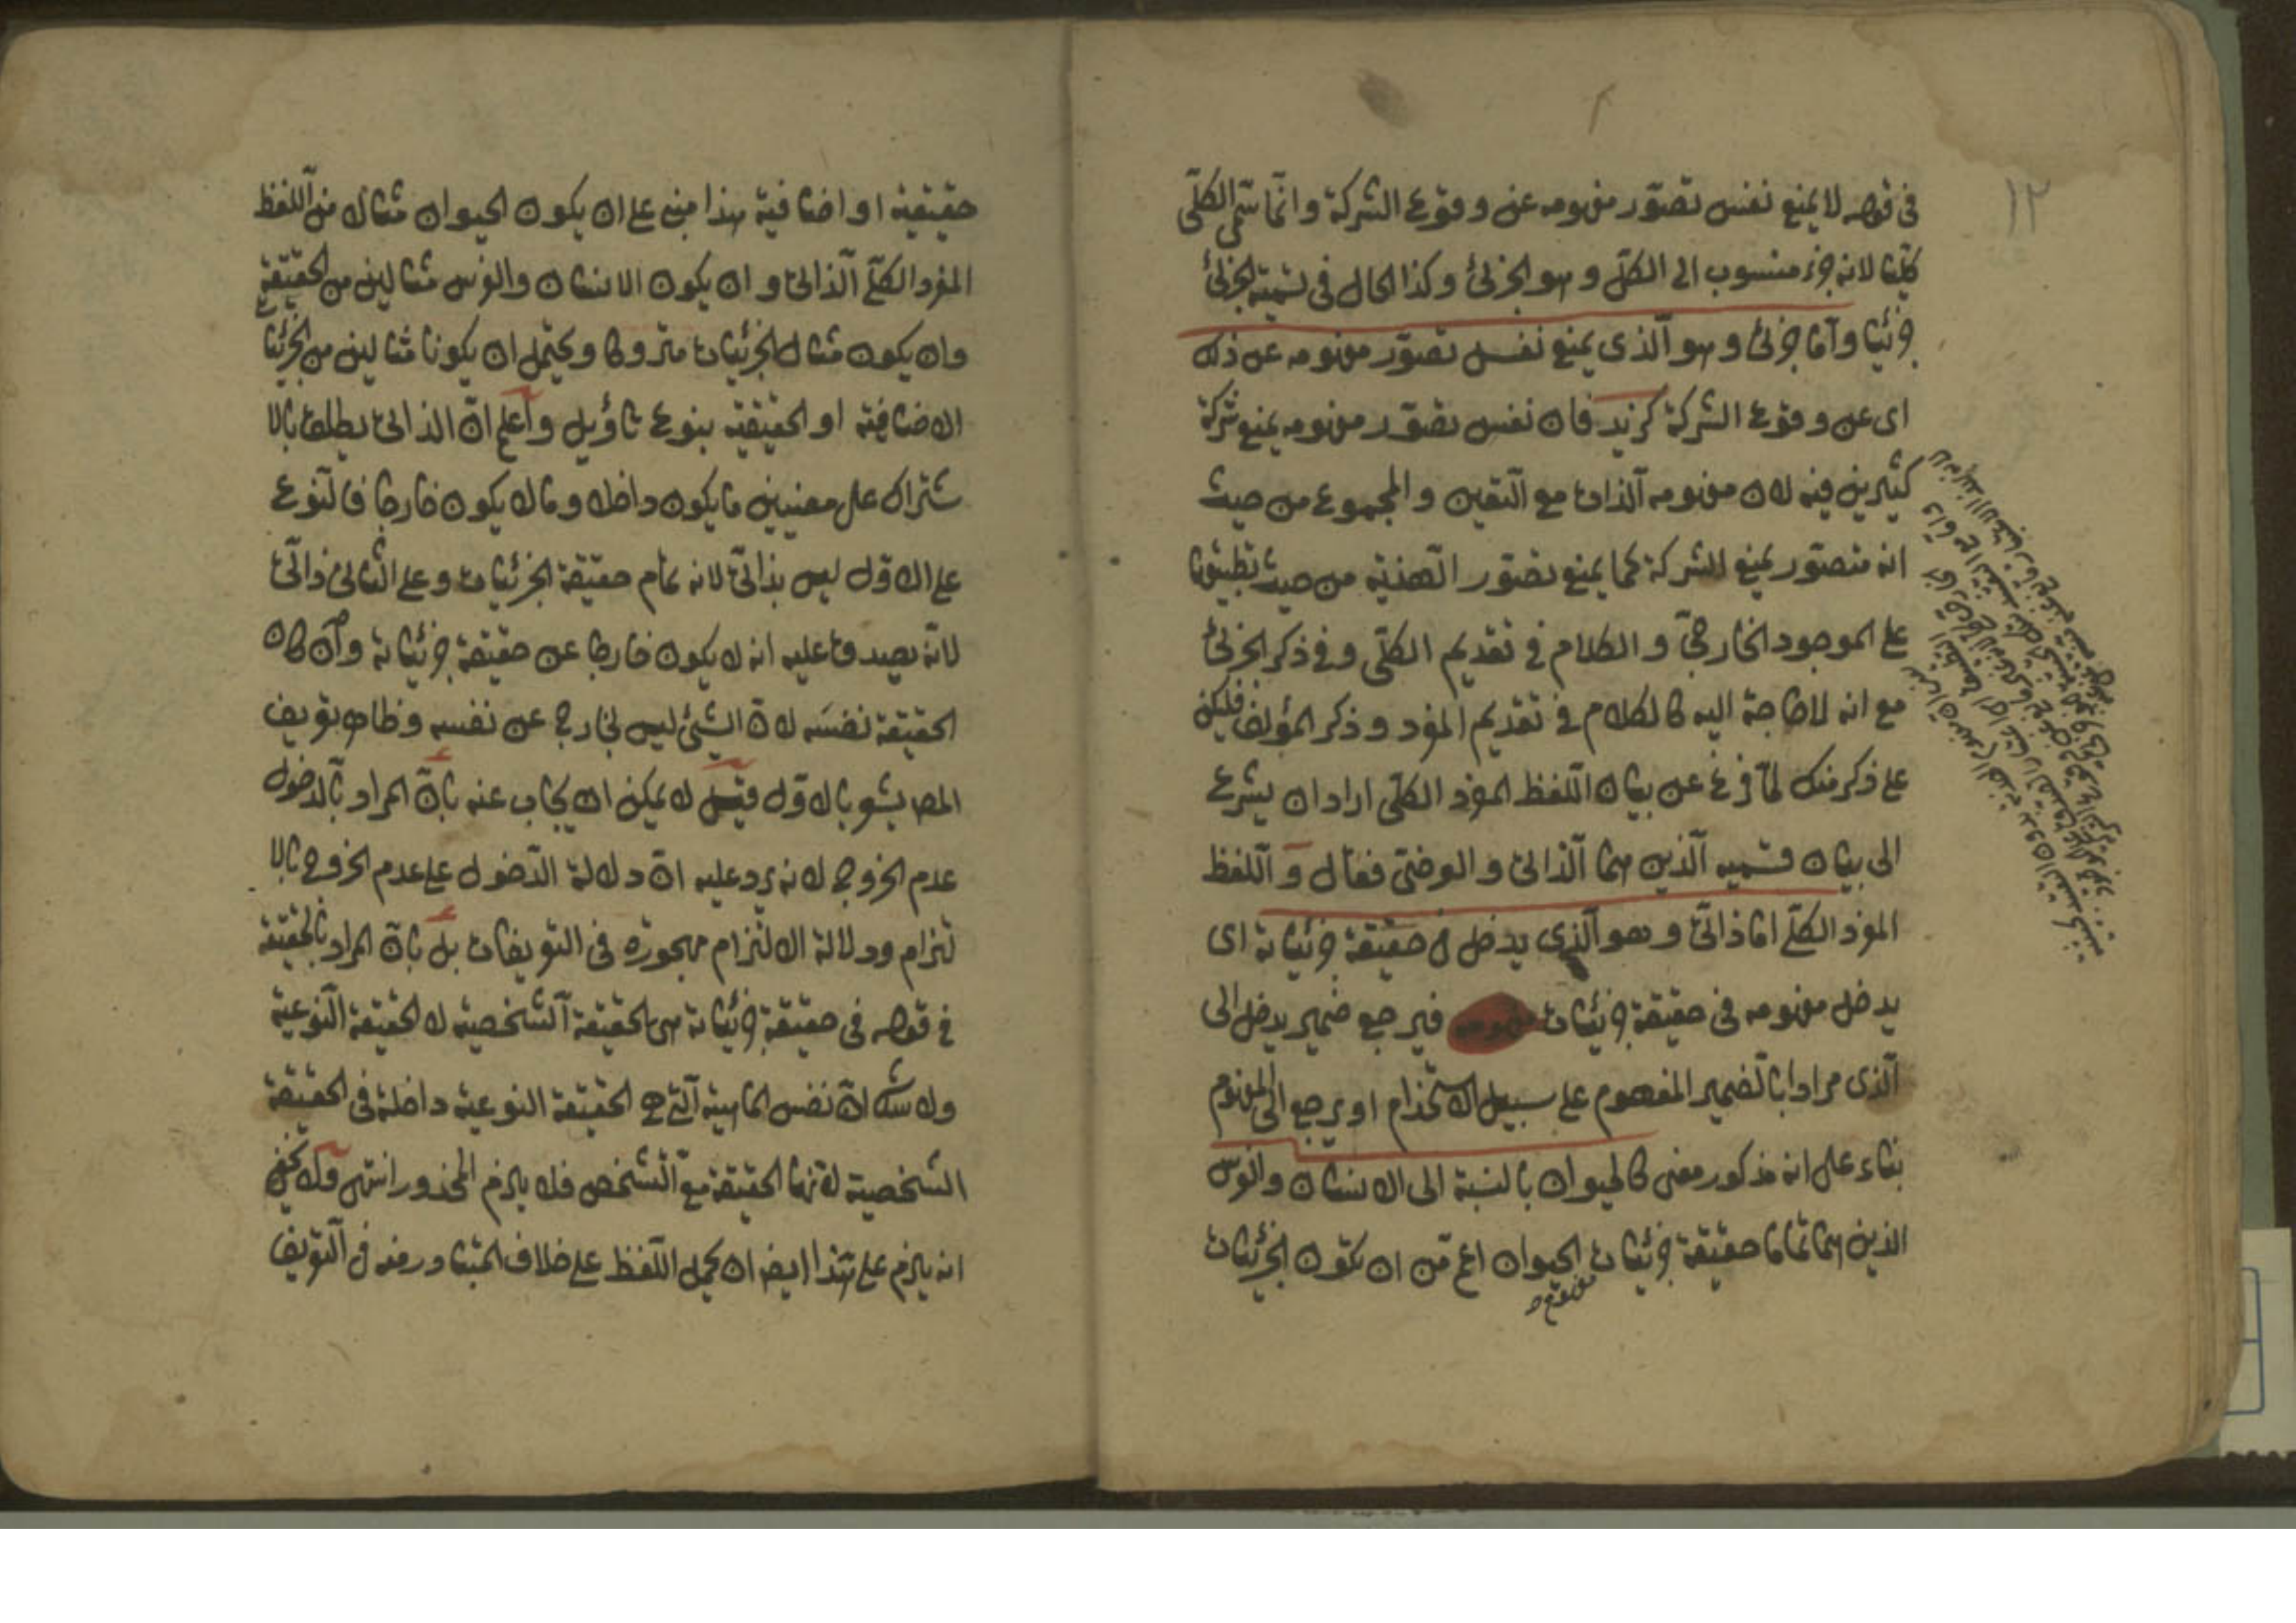 ١٢
في قوله لا يمنع نفس تصوّر مفهومه عن وقوع الشركة وانّما سمّى الكلّى
كلّيّا لانه جزء منسوب الى الكلّ وهو الجزئى وكذا الحال فى تسمية الجزئى
جزئيا وامّا جزئى وهو الّذى يمنع نفس تصوّر مفهومه عن ذلك
اى عن وقوع الشركة كزيد فان نفس تصوّر مفهومه يمنع شركة
كثيرين فيه لان مفهومه الذات مع التعين والمجموع من حيث
انه متصوّر يمنع الشركة كما يمنع تصوّر الذهنية من حيث تطبيقها
على الموجود الخارجىّ والكلام فى تقديم الكلّى وفى ذكر الجزئى
مع انه لا حاجة اليه كالكلام فى تقديم المفرد وذكر المؤلف فليكن
على ذكر منك لمّا فرغ عن بيان اللّفظ المفرد الكلّى اراد ان يشرع
الى بيان قسميه الّذين هما الّذاتى والعرضى فقال و الّلفظ
المفرد الكلّى امّا ذاتىّ وهو الّذى يدخل فى حقيقة جزئياته اى
يدخل مفهومه فى حقيقة جزئيات فيرجع ضمير يدخل الى
الّذى مرادا بالضمير المفهوم على سبيل الاستخذام او يرجع الى المفهوم
بناء على انه مذكور معنى كالحيوان بالنسبة الى الانسان والفرس
الذين هما تماما حقيقة جزئيات الحيوان اعمّ من ان تكون الجزئيات
حقيقية او اضافية هذا مبنى على ان يكون الحيوان مثالا من اللفظ
المفرد الكلّى الّذاتى وان يكون الانسان والفرس مثالين من الحقيقة
وان يكون مثال الجزئيات متروكا ويحتمل ان يكونا مثالين من الجزئيات
الاضافية او الحقيقية بنوع تأويل واعلم انّ الذاتى يطلق بالا
شتراك على معنيين ما يكون داخلا وما لا يكون خارجا فالنوع
على الاوّل ليس بذاتىّ لانه تمام حقيقة الجزئيات وعلى الثانى ذاتىّ
لانّه يصدق عليه انه لا يكون خارجا عن حقيقة جزئياته وان كان
الحقيقة نفسه لانّ الشئ ليس بخارج عن نفسه وظاهر تعريف
المص يشعر بالاوّل قيل لا يمكن ان يجاب عنه بانّ المراد بالدخول
عدم الخروج لانه يرد عليه انّ دلالة الدخول على عدم الخروج بالا
لتزام ودلالة الالتزام مهجورة فى التعريفات بل بانّ المراد بالحقيقة
فى قوله فى حقيقة جزئياته هى الحقيقة الشخصية لا الحقيقة النوعية
ولا شك انّ نفس الماهية الّتى هى الحقيقة النوعية داخلة فى الحقيقة
الشخصية لانّها الحقيقة مع التشخص فلا يلزم المحذور انتهى ولا يخفى
انه يلزم على هذا ايضا ان يحمل اللّفظ على خلاف المتبادر منه فى التعريف